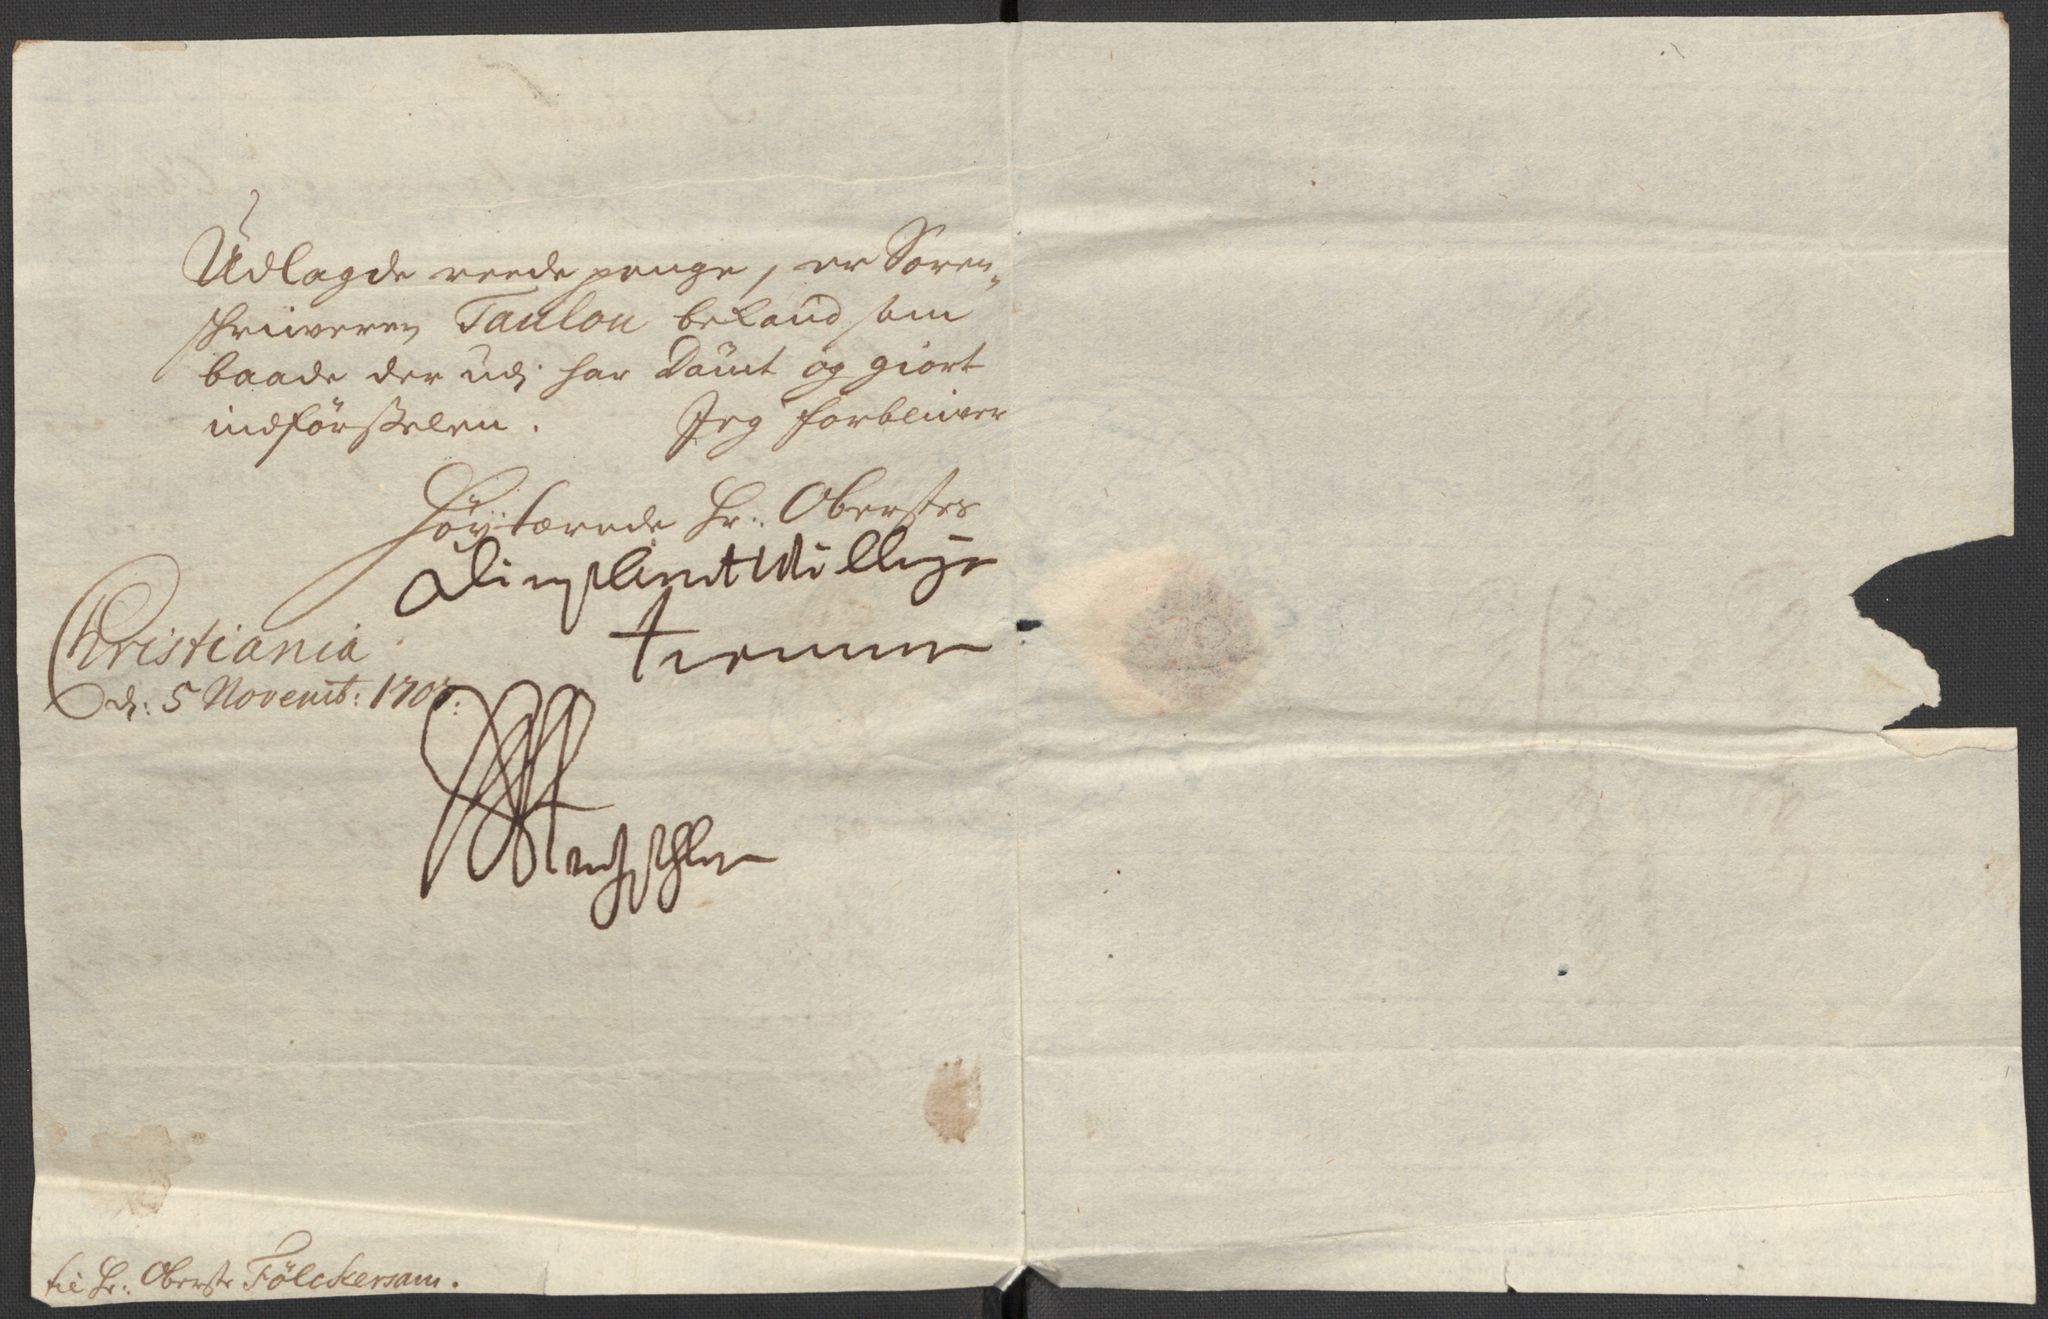 Udlagde reede penge, er Soren-
schriiveren Taulou bekand som
baade der udj har Dömt og giort
indförsselen. Jeg forbliiver
Höytærede Hr: Oberstes
Dienstwillige
tienner
Christiania
d: 5 Novemb: 1707:
til Hr: Oberste Fölckersam.